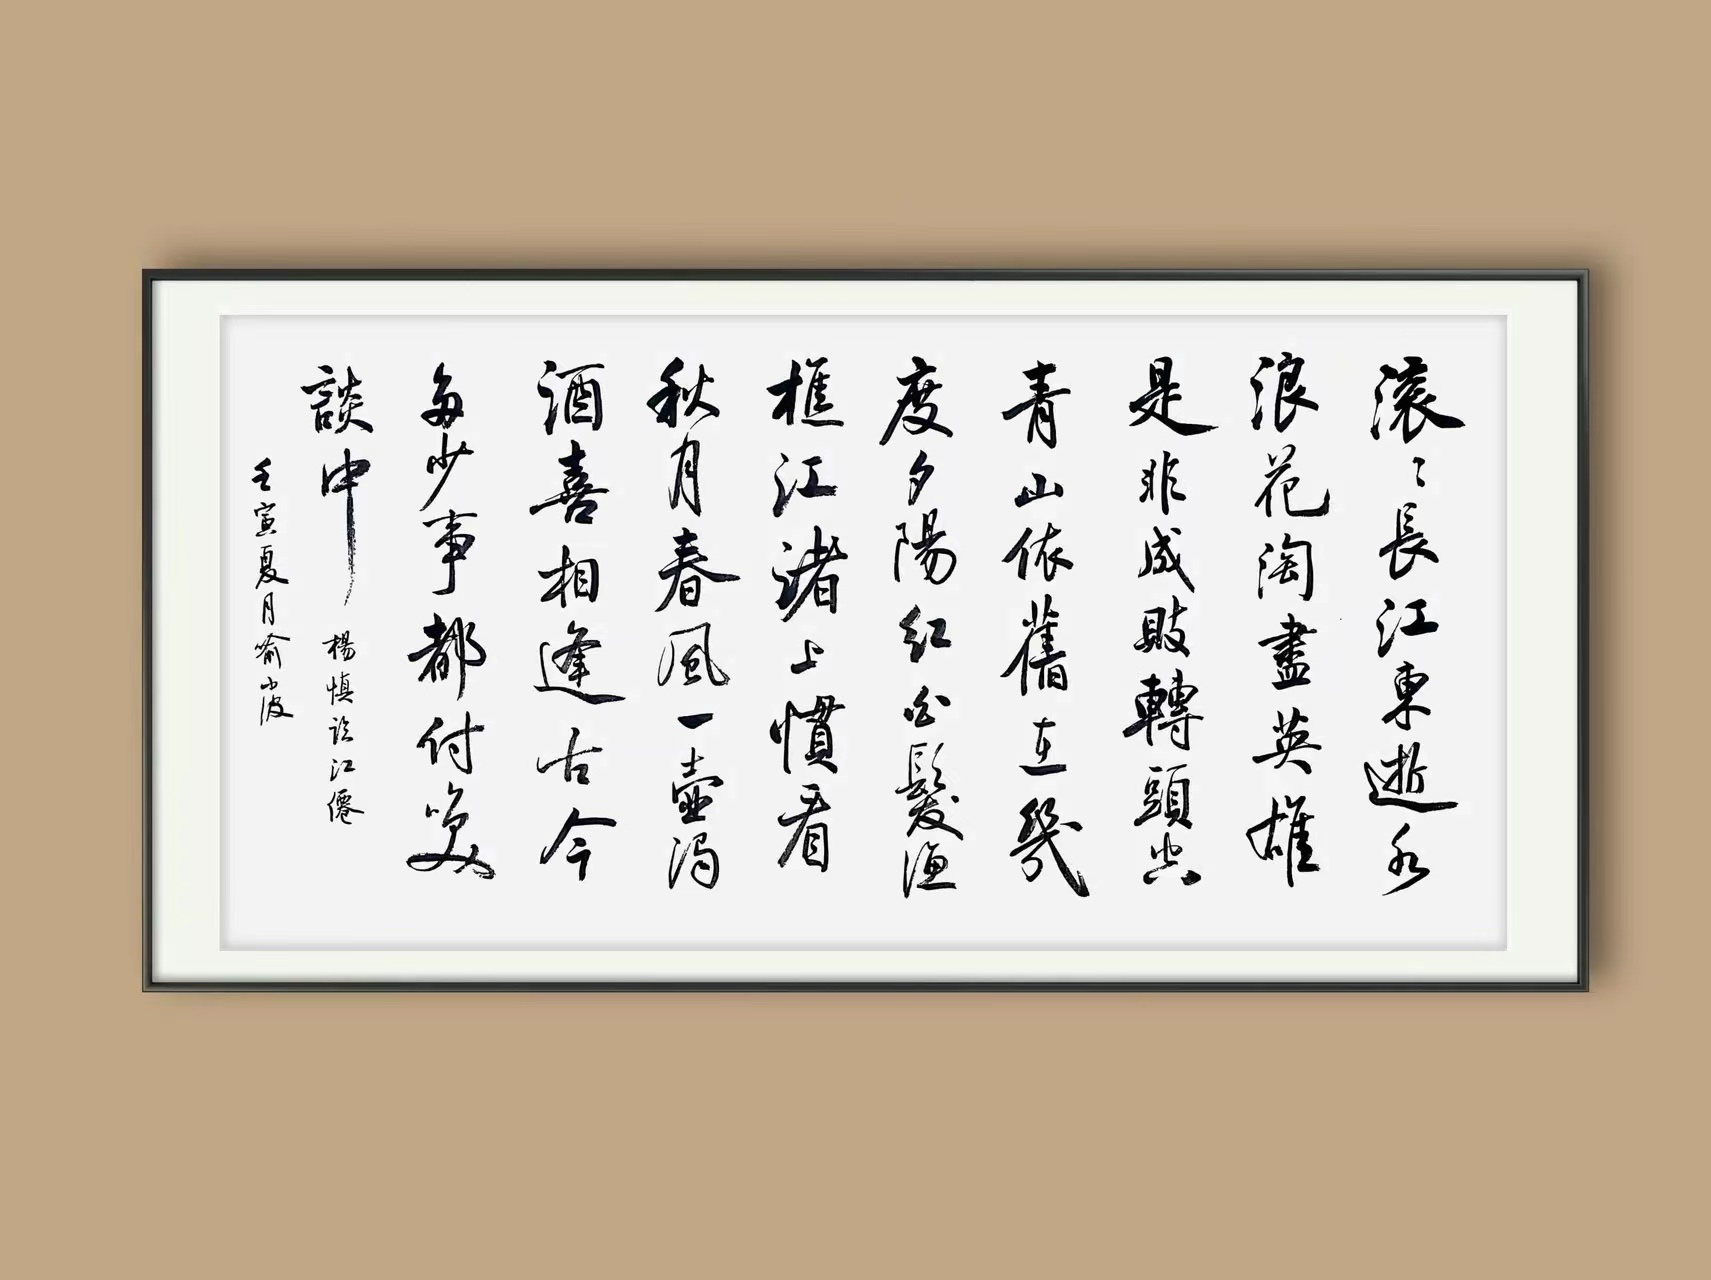 滚〻長江東逝水
浪花淘盡英雄
是非成敗轉頭空
青山依舊在幾
度夕陽紅白髮漁
樵江渚上慣看
秋月春風一壺濁
酒喜相逢古今
多少事都付笑
談中
楊慎臨江僊
壬寅夏月喻小波